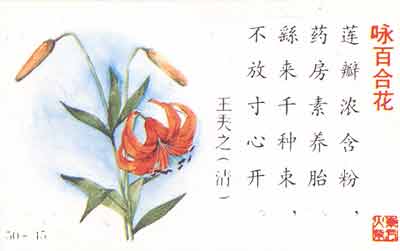 咏百合花
莲瓣浓含粉，
药房素养胎.
繇来千种束，
不放寸心开.
王夫之(清)